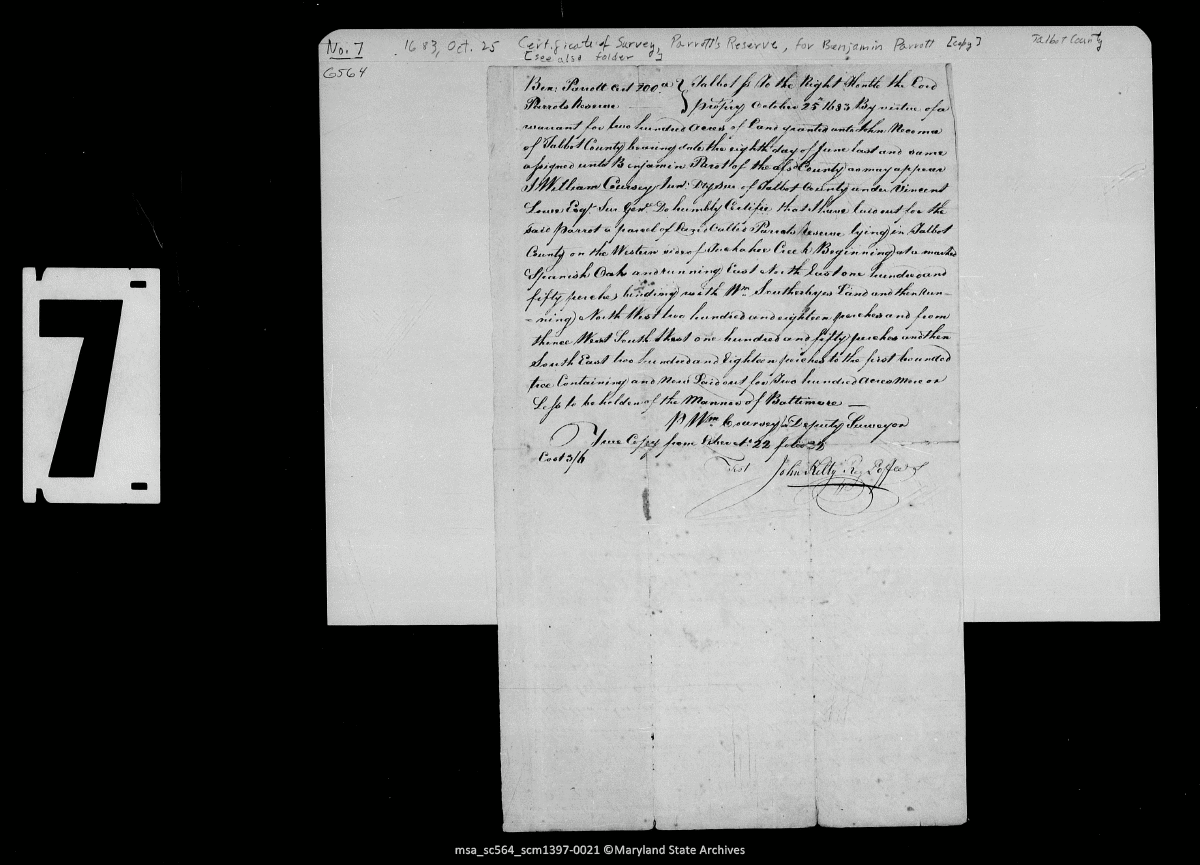 No. 7 1683, Oct. 25 Certificate of Survey, Parrott's Reserve, for Benjamin Parrott [copy] Talbot County
[see also folder]
G564
7
Ben: Parrott Cert 200 a } Talbot ss To the Right Honble the Lord
Parrots Reserve } Propry October 25th 1683 By virtue of a
warrant for two hundred acres of Land granted unto John
of Talbot County bearing date the eighth day of June last and same
assigned unto Benjamin Parot of the afsd County as may appear
I William Coursey Junr Dty Sur of Talbot County under Vincent
Lowe Esqr Sur Genl Do humbly Certifie that I have laid out for the
said Parrot a parcel of Land Called Parrots Reserve lying in Talbot
County on the Western side of Tuckahoe Creek Beginning at a marked
Spanish Oak and running East North East one hundred and
fifty perches binding with Wm Southerbeys Land and then Run-
-ning North West two hundred and eighteen perches and from
thence West South West one hundred and fifty perches and then
South East two hundred and Eighteen perches to the first bounded
tree Containing and Now Laid out for Two hundred acres More or
Less to be holden of the Mannor of Baltimore
P Wm Coursey Deputy Surveyor
True Copy from No. 22 folio
Cost 3/6
Test John Kilty Reg
msa_sc564_scm1397-0021 ©Maryland State Archives